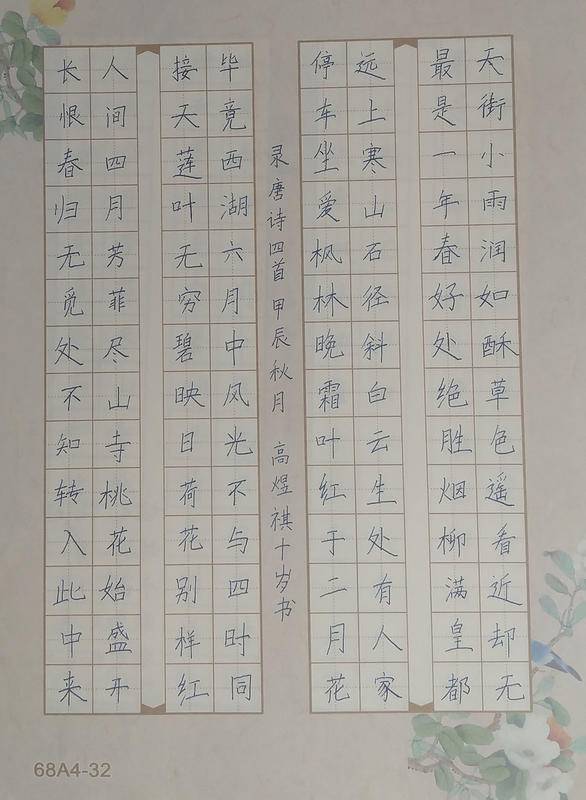 天街小雨润如酥草色遥看近却无
最是一年春好处绝胜烟柳满皇都
远上寒山石径斜白云生处有人家
停车坐爱枫林晚霜叶红于二月花
录唐诗四首 甲辰秋月 高煜祺十岁书
毕竟西湖六月中风光不与四时同
接天莲叶无穷碧映日荷花别样红
人间四月芳菲尽山寺桃花始盛开
长恨春归无觅处不知转入此中来
68A4-32